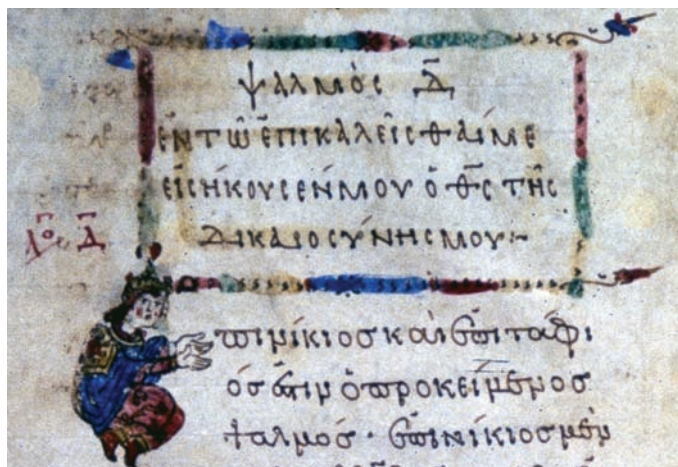 ψαλμὸς Δ̅
ἐν τῶ ἐπικαλεῖσθαί με
εἰσήκουσέν μου ὁ θ̅ς̅ τῆς
δικαιοσύνης μου:~
Δ̅
πινίκιος καὶ ἐπιτάφι
ός ἐστιν ὁ προκείμενος
ψαλμός· ἐπινίκιος μὲν